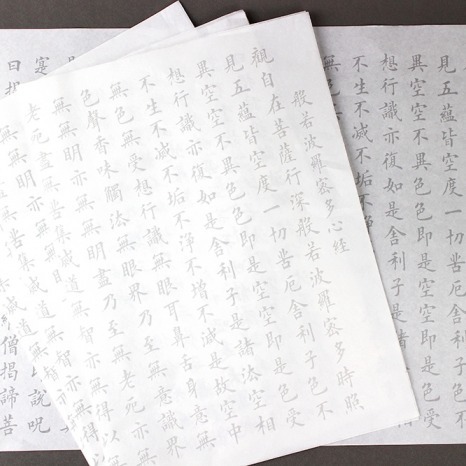 見五蘊皆空度一切苦厄舍利子色不
異空空不異色色即是空空即是色受
想行識亦復如是舍利子是諸
不生不滅不垢不淨
無色
般若波羅蜜多心経
觀自在菩薩行深般若波羅蜜多時照
見五蘊皆空度一切苦厄舍利子色不
異空空不異色色即是空空即是色受
想行識亦復如是舍利子是諸法空相
不生不滅不垢不淨不增不減是故空中
無色無受想行識無眼耳鼻舌身意無
色聲香味觸法無眼界乃至無意識界
無無明亦無無明盡乃至無老死亦無
老死盡無苦集滅道無智亦無得以無
説呪
曰揭
僧揭諦菩